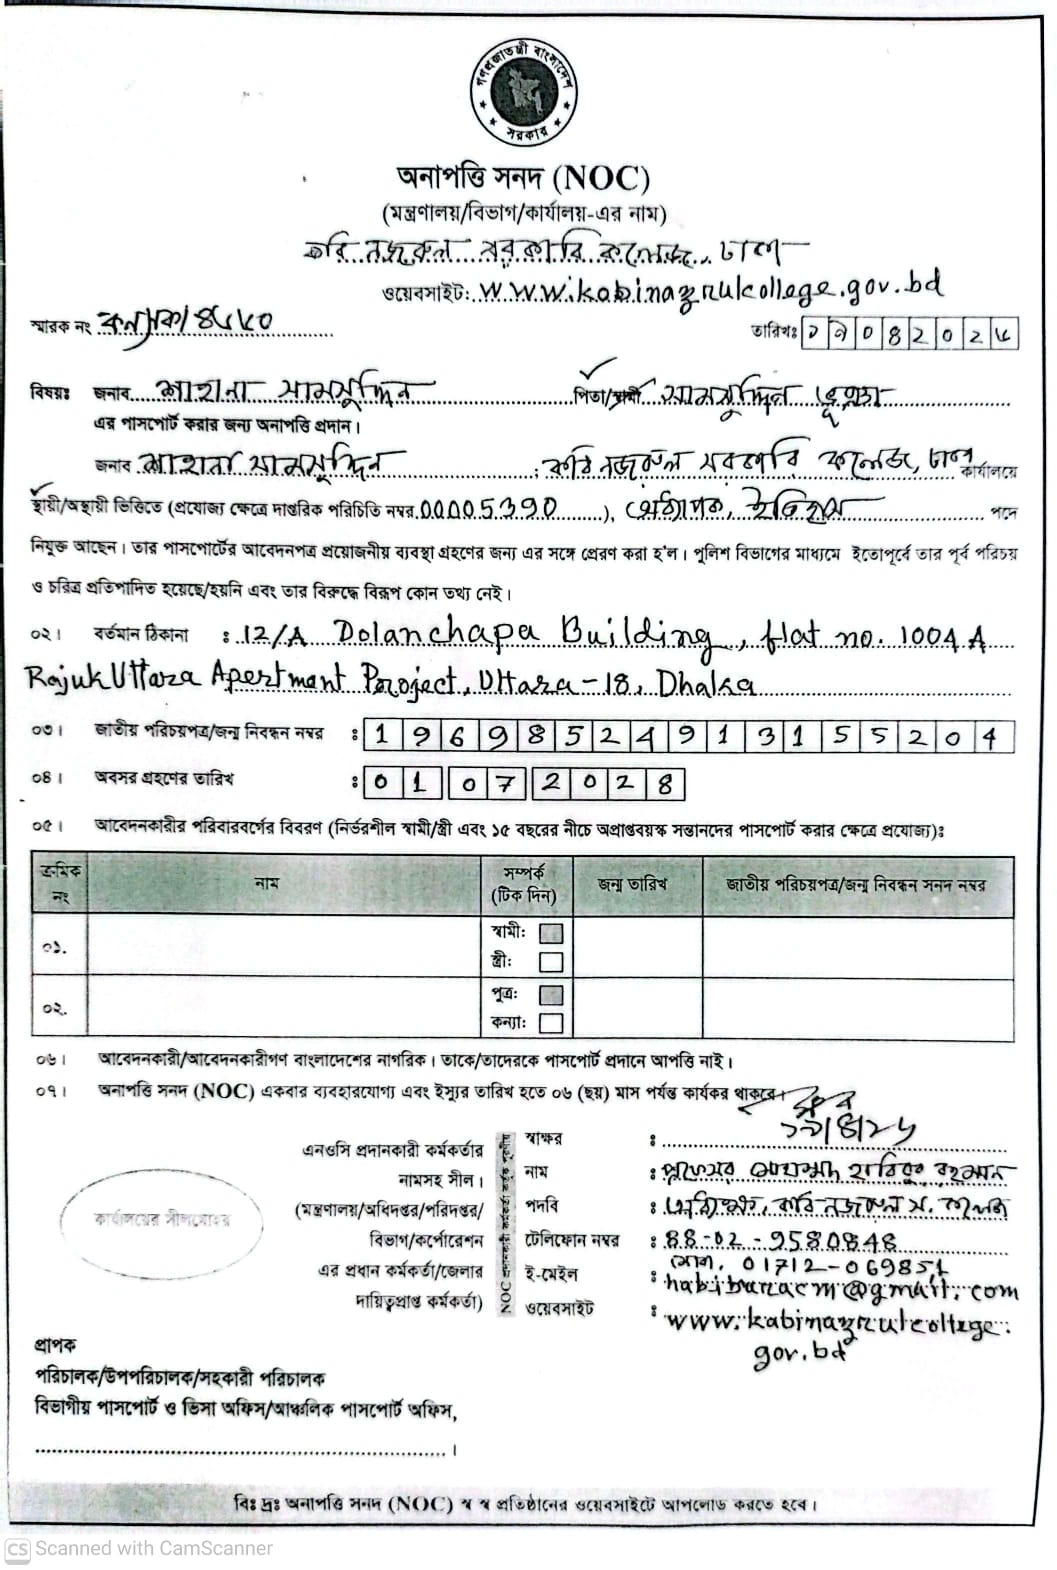 গণপ্রজাতন্ত্রী বাংলাদেশ
সরকার
অনাপত্তি সনদ (NOC)
(মন্ত্রণালয়/বিভাগ/কার্যালয়-এর নাম)
কবি নজরুল সরকারি কলেজ, ঢাকা
ওয়েবসাইট: www.kabinazrulcollege.gov.bd
স্মারক নং
তারিখঃ ১৭০৪২০২৬
বিষয়ঃ জনাব শাহানা সামসুদ্দিন পিতা/স্বামী সামসুদ্দিন ভূঞা
এর পাসপোর্ট করার জন্য অনাপত্তি প্রদান।
জনাব শাহানা সামসুদ্দিন, কবি নজরুল সরকারি কলেজ, ঢাকা কার্যালয়ে
স্থায়ী/অস্থায়ী ভিত্তিতে (প্রযোজ্য ক্ষেত্রে দাপ্তরিক পরিচিতি নম্বর 00005390), ইতিহাস পদে
নিযুক্ত আছেন। তার পাসপোর্টের আবেদনপত্র প্রয়োজনীয় ব্যবস্থা গ্রহণের জন্য এর সঙ্গে প্রেরণ করা হ'ল। পুলিশ বিভাগের মাধ্যমে ইতোপূর্বে তার পূর্ব পরিচয়
ও চরিত্র প্রতিপাদিত হয়েছে/হয়নি এবং তার বিরুদ্ধে বিরূপ কোন তথ্য নেই।
০২। বর্তমান ঠিকানা : 12/A Dolanchapa Building, flat no. 1004 A
Rajuk Uttara Apertment Project, Uttara-18, Dhaka
০৩। জাতীয় পরিচয়পত্র/জন্ম নিবন্ধন নম্বর : 19698524913155204
০৪। অবসর গ্রহণের তারিখ : 01 07 2028
০৫। আবেদনকারীর পরিবারবর্গের বিবরণ (নির্ভরশীল স্বামী/স্ত্রী এবং ১৫ বছরের নীচে অপ্রাপ্তবয়স্ক সন্তানদের পাসপোর্ট করার ক্ষেত্রে প্রযোজ্য)ঃ
ক্রমিক নং নাম সম্পর্ক (টিক দিন) জন্ম তারিখ জাতীয় পরিচয়পত্র/জন্ম নিবন্ধন সনদ নম্বর
০১. স্বামী:
স্ত্রী:
০২. পুত্র:
কন্যা:
০৬। আবেদনকারী/আবেদনকারীগণ বাংলাদেশের নাগরিক। তাকে/তাদেরকে পাসপোর্ট প্রদানে আপত্তি নাই।
০৭। অনাপত্তি সনদ (NOC) একবার ব্যবহারযোগ্য এবং ইস্যুর তারিখ হতে ০৬ (ছয়) মাস পর্যন্ত কার্যকর থাকবে।
এনওসি প্রদানকারী কর্মকর্তার
নামসহ সীল।
(মন্ত্রণালয়/অধিদপ্তর/পরিদপ্তর/
বিভাগ/কর্পোরেশন
এর প্রধান কর্মকর্তা/জেলার
দায়িত্বপ্রাপ্ত কর্মকর্তা)
কার্যালয়ের সীলমোহর
স্বাক্ষর :
নাম : প্রফেসর মোহাম্মদ হাবিবুর রহমান
পদবি : কবি নজরুল স. কলেজ
টেলিফোন নম্বর : 88-02-9580848
01712-069851
ই-মেইল : @gmail.com
ওয়েবসাইট : www.kabinazrulcollege.
gov.bd
প্রাপক
পরিচালক/উপপরিচালক/সহকারী পরিচালক
বিভাগীয় পাসপোর্ট ও ভিসা অফিস/আঞ্চলিক পাসপোর্ট অফিস,
বিঃ দ্রঃ অনাপত্তি সনদ (NOC) স্ব স্ব প্রতিষ্ঠানের ওয়েবসাইটে আপলোড করতে হবে।
CS Scanned with CamScanner